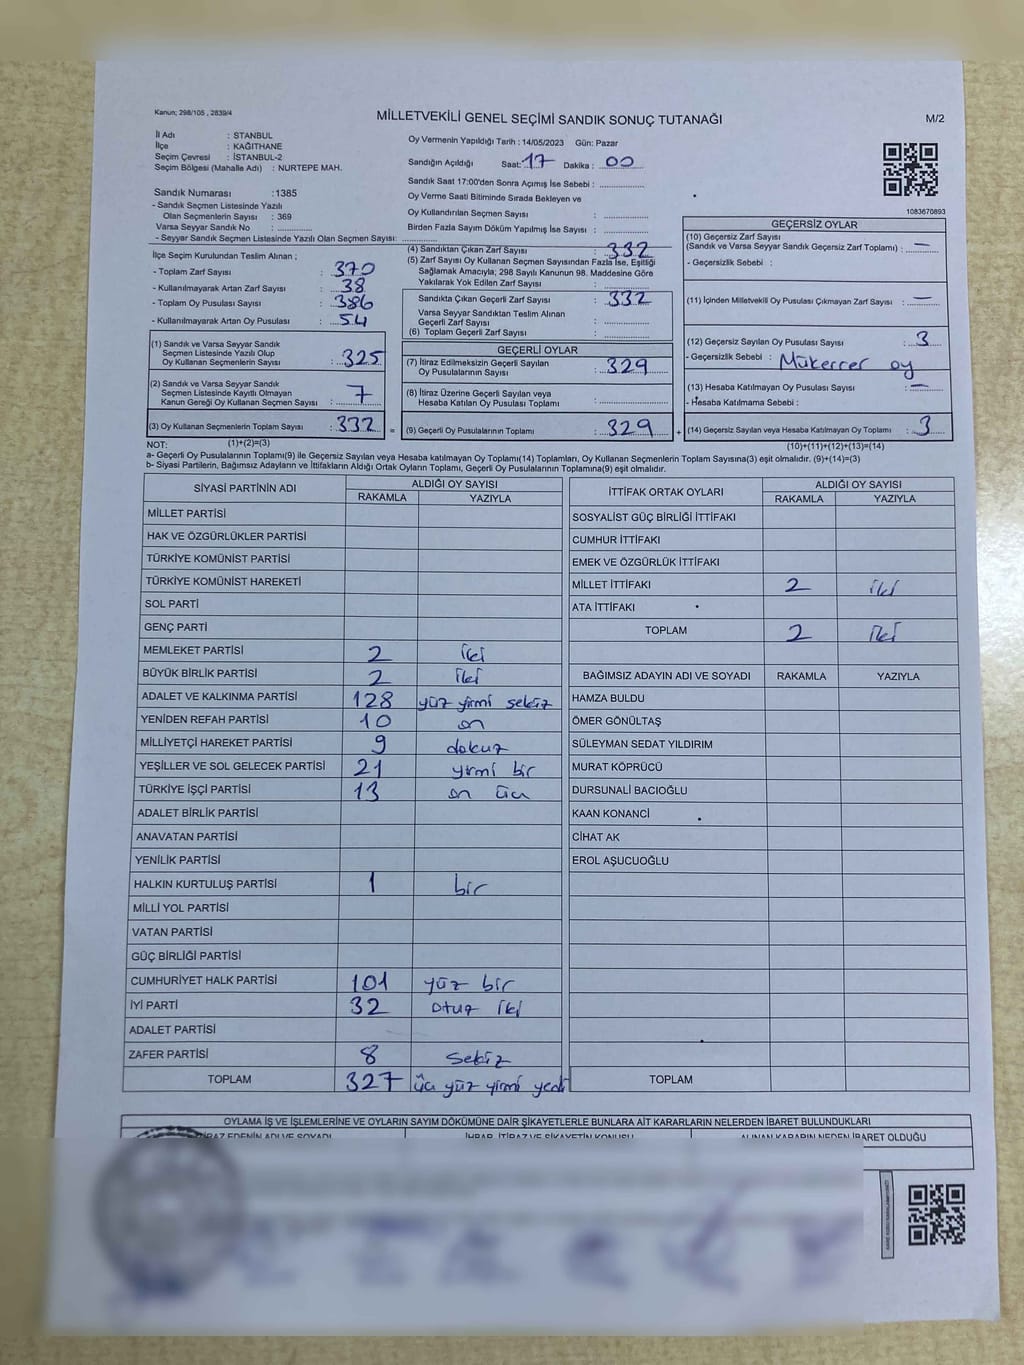 Kanun; 298/105 , 2839/4
MİLLETVEKİLİ GENEL SEÇİMİ SANDIK SONUÇ TUTANAĞI
M/2
İl Adı : STANBUL
İlçe : KAĞITHANE
Seçim Çevresi : İSTANBUL-2
Seçim Bölgesi (Mahalle Adı) : NURTEPE MAH.
Sandık Numarası :1385
- Sandık Seçmen Listesinde Yazılı
Olan Seçmenlerin Sayısı : 369
Varsa Seyyar Sandık No : ............
- Seyyar Sandık Seçmen Listesinde Yazılı Olan Seçmen Sayısı: ............
Oy Vermenin Yapıldığı Tarih : 14/05/2023 Gün: Pazar
Sandığın Açıldığı Saat: 17 Dakika : 00
Sandık Saat 17:00'den Sonra Açımış İse Sebebi : ............
Oy Verme Saati Bitiminde Sırada Bekleyen ve
Oy Kullandırılan Seçmen Sayısı : ............
Birden Fazla Sayım Döküm Yapılmış İse Sayısı : ............
1083670893
İlçe Seçim Kurulundan Teslim Alınan ;
- Toplam Zarf Sayısı : 370
- Kullanılmayarak Artan Zarf Sayısı : 38
- Toplam Oy Pusulası Sayısı : 386
- Kullanılmayarak Artan Oy Pusulası : 54
(1) Sandık ve Varsa Seyyar Sandık
Seçmen Listesinde Yazılı Olup
Oy Kullanan Seçmenlerin Sayısı : 325
(2) Sandık ve Varsa Seyyar Sandık
Seçmen Listesinde Kayıtlı Olmayan
Kanun Gereği Oy Kullanan Seçmen Sayısı : 7
(3) Oy Kullanan Seçmenlerin Toplam Sayısı : 332 =
(1)+(2)=(3)
(4) Sandıktan Çıkan Zarf Sayısı : 332
(5) Zarf Sayısı Oy Kullanan Seçmen Sayısından Fazla İse, Eşitliği
Sağlamak Amacıyla; 298 Sayılı Kanunun 98. Maddesine Göre
Yakılarak Yok Edilen Zarf Sayısı : ............
Sandıkta Çıkan Geçerli Zarf Sayısı : 332
Varsa Seyyar Sandıktan Teslim Alınan
Geçerli Zarf Sayısı : ............
(6) Toplam Geçerli Zarf Sayısı : ............
GEÇERLİ OYLAR
(7) İtiraz Edilmeksizin Geçerli Sayılan
Oy Pusulalarının Sayısı : 329
(8) İtiraz Üzerine Geçerli Sayılan veya
Hesaba Katılan Oy Pusulası Toplamı : ............
(9) Geçerli Oy Pusulalarının Toplamı : 329 +
GEÇERSİZ OYLAR
(10) Geçersiz Zarf Sayısı
(Sandık ve Varsa Seyyar Sandık Geçersiz Zarf Toplamı) : —
- Geçersizlik Sebebi :
(11) İçinden Milletvekili Oy Pusulası Çıkmayan Zarf Sayısı : —
(12) Geçersiz Sayılan Oy Pusulası Sayısı : 3
- Geçersizlik Sebebi : Mükerrer oy
(13) Hesaba Katılmayan Oy Pusulası Sayısı : —
- Hesaba Katılmama Sebebi :
(14) Geçersiz Sayılan veya Hesaba Katılmayan Oy Toplamı : 3
(10)+(11)+(12)+(13)=(14)
NOT:
a- Geçerli Oy Pusulalarının Toplamı(9) ile Geçersiz Sayılan veya Hesaba katılmayan Oy Toplamı(14) Toplamları, Oy Kullanan Seçmenlerin Toplam Sayısına(3) eşit olmalıdır. (9)+(14)=(3)
b- Siyasi Partilerin, Bağımsız Adayların ve İttifakların Aldığı Ortak Oyların Toplamı, Geçerli Oy Pusulalarının Toplamına(9) eşit olmalıdır.
SİYASİ PARTİNİN ADI ALDIĞI OY SAYISI
RAKAMLA YAZIYLA
MİLLET PARTİSİ
HAK VE ÖZGÜRLÜKLER PARTİSİ
TÜRKİYE KOMÜNİST PARTİSİ
TÜRKİYE KOMÜNİST HAREKETİ
SOL PARTİ
GENÇ PARTİ
MEMLEKET PARTİSİ 2 iki
BÜYÜK BİRLİK PARTİSİ 2 iki
ADALET VE KALKINMA PARTİSİ 128 yüz yirmi sekiz
YENİDEN REFAH PARTİSİ 10 on
MİLLİYETÇİ HAREKET PARTİSİ 9 dokuz
YEŞİLLER VE SOL GELECEK PARTİSİ 21 yirmi bir
TÜRKİYE İŞÇİ PARTİSİ 13 on üç
ADALET BİRLİK PARTİSİ
ANAVATAN PARTİSİ
YENİLİK PARTİSİ
HALKIN KURTULUŞ PARTİSİ 1 bir
MİLLİ YOL PARTİSİ
VATAN PARTİSİ
GÜÇ BİRLİĞİ PARTİSİ
CUMHURİYET HALK PARTİSİ 101 yüz bir
İYİ PARTİ 32 otuz iki
ADALET PARTİSİ
ZAFER PARTİSİ 8 sekiz
TOPLAM 327 üç yüz yirmi yedi
İTTİFAK ORTAK OYLARI ALDIĞI OY SAYISI
RAKAMLA YAZIYLA
SOSYALİST GÜÇ BİRLİĞİ İTTİFAKI
CUMHUR İTTİFAKI
EMEK VE ÖZGÜRLÜK İTTİFAKI
MİLLET İTTİFAKI 2 iki
ATA İTTİFAKI
TOPLAM 2 iki
BAĞIMSIZ ADAYIN ADI VE SOYADI RAKAMLA YAZIYLA
HAMZA BULDU
ÖMER GÖNÜLTAŞ
SÜLEYMAN SEDAT YILDIRIM
MURAT KÖPRÜCÜ
DURSUNALİ BACIOĞLU
KAAN KONANCİ
CİHAT AK
EROL AŞUCUOĞLU
TOPLAM
OYLAMA İŞ VE İŞLEMLERİNE VE OYLARIN SAYIM DÖKÜMÜNE DAİR ŞİKAYETLERLE BUNLARA AİT KARARLARIN NELERDEN İBARET BULUNDUKLARI
İTİRAZ EDENİN ADI VE SOYADI İHBAR, İTİRAZ VE ŞİKAYETİN KONUSU ALINAN KARARIN NEDEN İBARET OLDUĞU